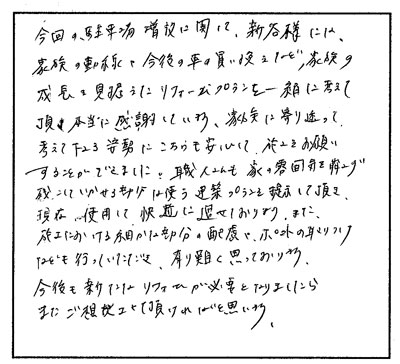 今回の駐車場増設に関して、新谷様には、
家族の動線や今後の車の買い替えなど、家族の
成長を見据えたリフォームプランを一緒に考えて
頂き本当に感謝しています。家族に寄り添って
考えて下さる姿勢にこちらも安心して、施工をお願い
することができました。職人さんも家の雰囲気を
残していかせる部分は使う建築プランを提示して頂き、
現在、使用して快適に過せております。また、
施工における細かな部分の配慮や、ポストの取りつけ
なども行っていただき、有り難く思っております。
今後も新たなリフォームが必要となりましたら
またご相談させて頂ければと思います。